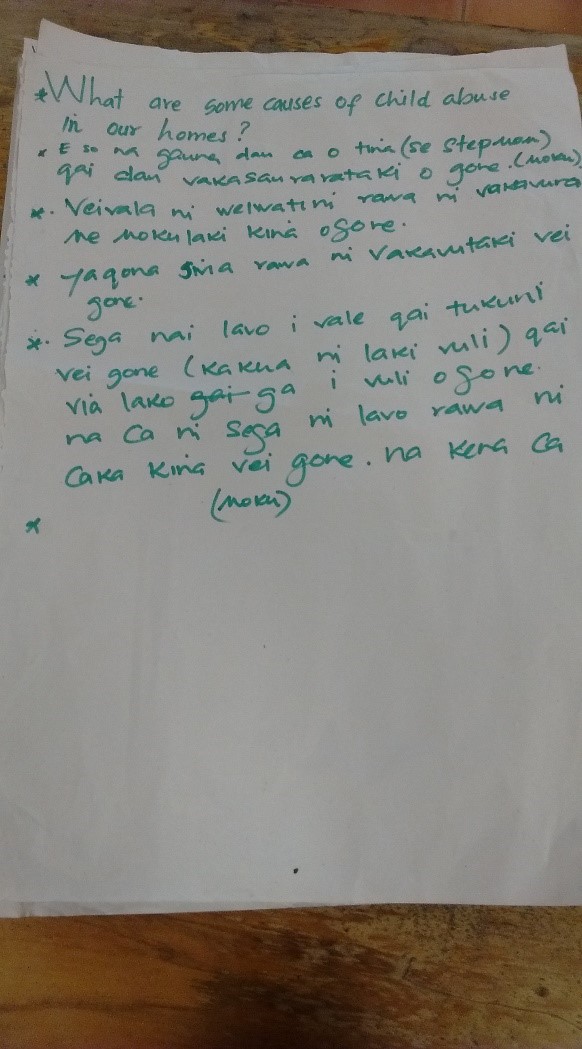 * What are some causes of child abuse
in our homes?
* E so na gauna dau ca o tina (se stepmom)
qai dau vakasaurarataki o gone. (moku)
*. Veivala ni veiwatini rawa ni vakavura
me mokulaki kina o gone.
* Yaqona sivia rawa ni vakavutaki vei
gone.
*. Sega nai lavo i vale qai tukuni
vei gone (kakua ni laki vuli) qai
via lako ga i vuli o gone.
na ca ni sega ni lavo rawa ni
caka kina vei gone. na kena ca
(moku)
*